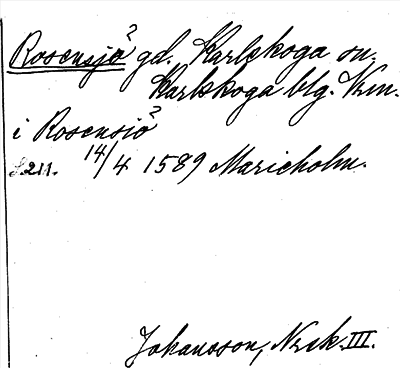 Rosensjö? gd. Karlskoga sn.
Karlskoga blg. Vrm.
i Rosensiö?
s. 211. 14/4 1589 Marieholm.
Johansson, Nrck III.